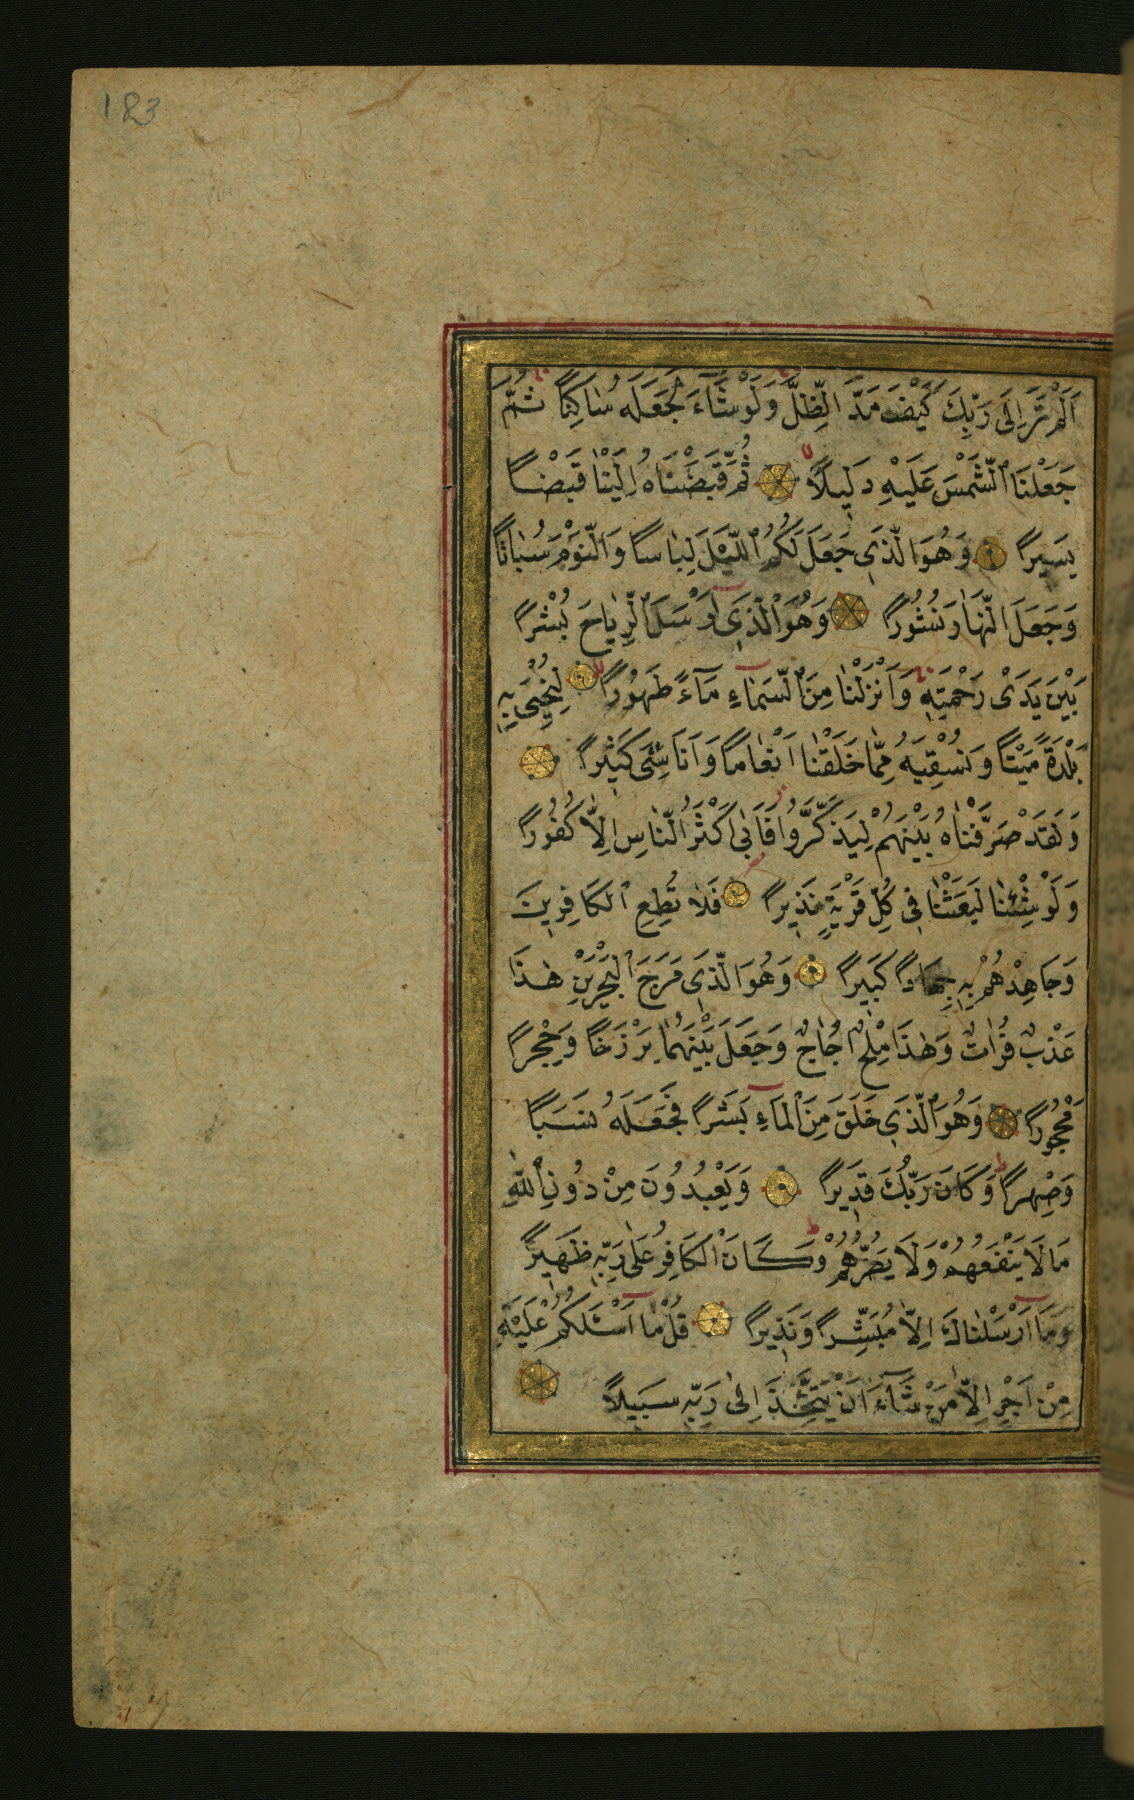 183
اَلَمْ تَرَ اِلٰى رَبِّكَ كَيْفَ مَدَّ الظِّلَّ وَلَوْ شَآءَ لَجَعَلَهُ سَاكِنًا ثُمَّ
جَعَلْنَا الشَّمْسَ عَلَيْهِ دَلِيلًا ثُمَّ قَبَضْنَاهُ اِلَيْنَا قَبْضًا
يَسِيرًا وَهُوَ الَّذِي جَعَلَ لَكُمُ اللَّيْلَ لِبَاسًا وَالنَّوْمَ سُبَاتًا
وَجَعَلَ النَّهَارَ نُشُورًا وَهُوَ الَّذِي اَرْسَلَ الرِّيَاحَ بُشْرًا
بَيْنَ يَدَىْ رَحْمَتِهِ وَاَنْزَلْنَا مِنَ السَّمَاءِ مَآءً طَهُورًا لِنُحْيِىَ بِهِ
بَلْدَةً مَيْتًا وَنُسْقِيَهُ مِمَّا خَلَقْنَا اَنْعَامًا وَاَنَاسِىَّ كَثِيرًا
وَلَقَدْ صَرَّفْنَاهُ بَيْنَهُمْ لِيَذَّكَّرُوا فَاَبٰى اَكْثَرُ النَّاسِ اِلَّا كُفُورًا
وَلَوْ شِئْنَا لَبَعَثْنَا فِي كُلِّ قَرْيَةٍ نَذِيرًا فَلَا تُطِعِ الْكَافِرِينَ
وَجَاهِدْهُمْ بِهِ جِهَادًا كَبِيرًا وَهُوَ الَّذِي مَرَجَ الْبَحْرَيْنِ هٰذَا
عَذْبٌ فُرَاتٌ وَهٰذَا مِلْحٌ اُجَاجٌ وَجَعَلَ بَيْنَهُمَا بَرْزَخًا وَحِجْرًا
مَحْجُورًا وَهُوَ الَّذِي خَلَقَ مِنَ الْمَاءِ بَشَرًا فَجَعَلَهُ نَسَبًا
وَصِهْرًا وَكَانَ رَبُّكَ قَدِيرًا وَيَعْبُدُونَ مِنْ دُونِ اللّٰهِ
مَا لَا يَنْفَعُهُمْ وَلَا يَضُرُّهُمْ وَكَانَ الْكَافِرُ عَلٰى رَبِّهِ ظَهِيرًا
وَمَا اَرْسَلْنَاكَ اِلَّا مُبَشِّرًا وَنَذِيرًا قُلْ مَا اَسْئَلُكُمْ عَلَيْهِ
مِنْ اَجْرٍ اِلَّا مَنْ شَآءَ اَنْ يَتَّخِذَ اِلٰى رَبِّهِ سَبِيلًا